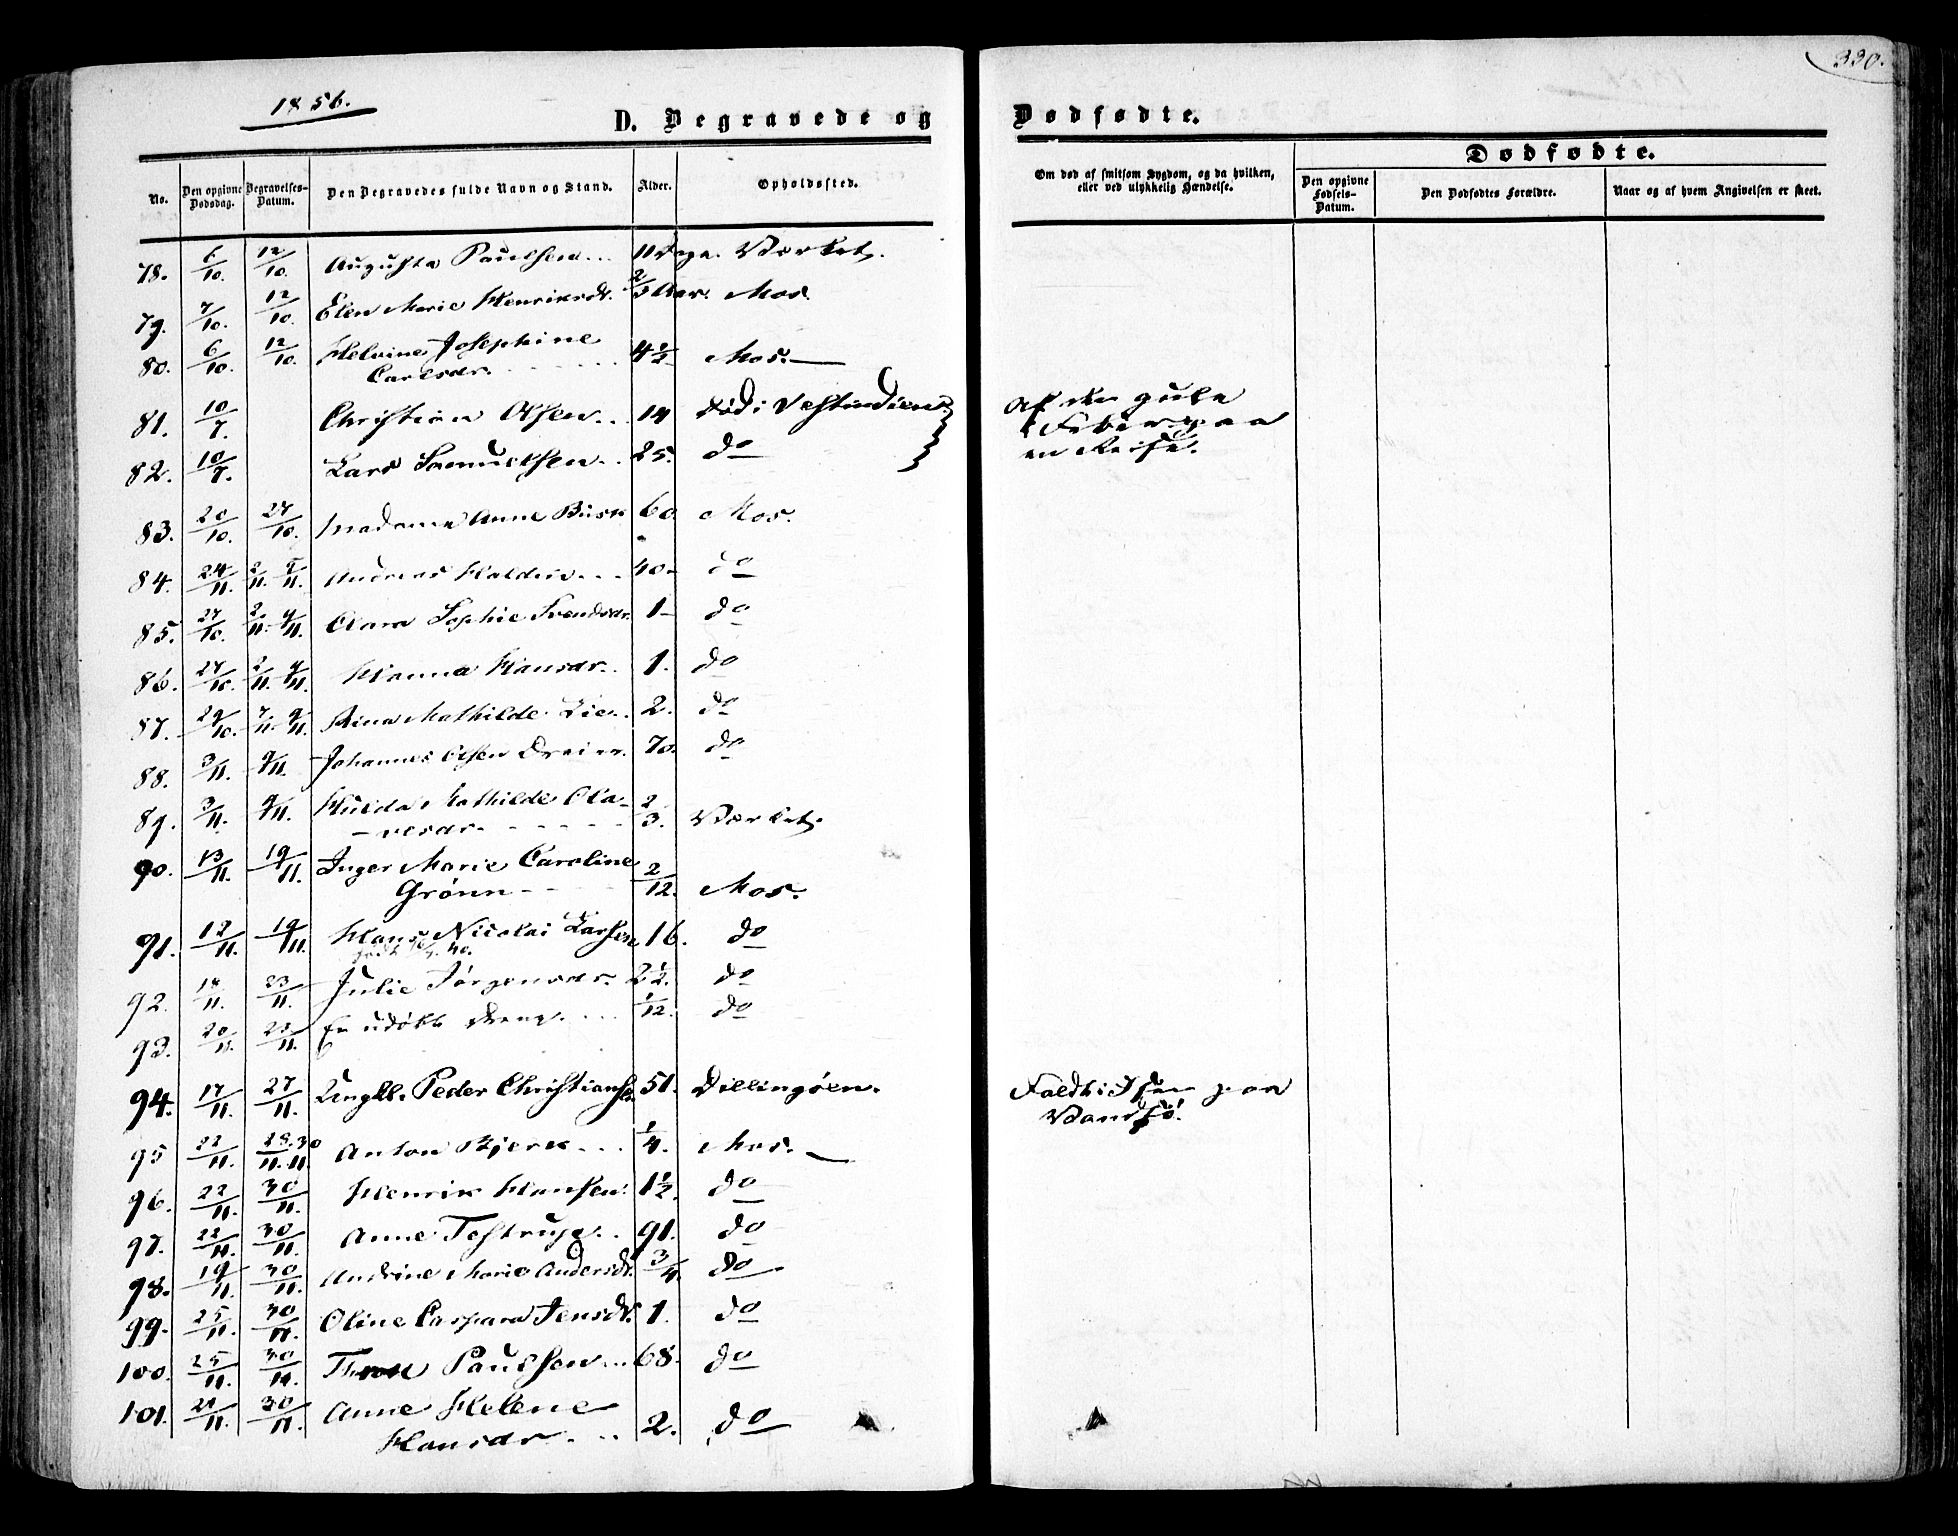 330.
1856.
D. Begravede og Dødfødte.
No. Den opgivne Dødsdag. Begravelses-Datum. Den Begravedes fulde Navn og Stand. Alder. Opholdssted. Om død af smitsom Sygdom, og da hvilken, eller ved ulykkelig Hændelse. Dødfødte. Den opgivne Fødsels-Datum. Den Dødfødtes Forældre. Naar og af hvem Angivelsen er skeet.
78. 6/10. 12/10. Augusta Paulsen... 11 Dage. Værket.
79. 7/10. 12/10. Elen Marie Henriksdr. 2/3 Aar. Mos.
80. 6/10. 12/10. Helvine Josephine
Carlsdr. 4 1/2 Mos.
81. 10/7. Christian Olsen... 14 Død i Vestindien. af den gule
Feber paa
82. 10/7. Lars Samuelsen.. 25. do en Reise.
83. 20/10. 27/10. Madame Anne Busk 60. Mos.
84. 24/11. 2/11. 9/11. Andreas Halden... 40. do
85. 27/10. 2/11. 9/11. Clara Sophie Svendsdr. 1 do
86. 27/10. 2/11. 9/11. Hanna Hansdr.. 1. do
87. 29/10. 7/11. 9/11. Rina Mathilde Lie.. 2. do
88. 3/11. 9/11. Johannes Olsen 70. do
89. 3/11. 9/11. Hulda Mathilde Ola-
vesdr. 2/3. Værket.
90. 13/11. 19/11. Inger Marie Caroline
Grønn 2/12. Mos.
91. 12/11. 19/11. Hans Nicolai Larsen 16. do
92. 18/11. 23/11. Julie Jørgensdr. 2 1/2. do
93. 20/11. 23/11. En udøbt Dreng. 1/12. do
94. 17/11. 27/11. Ungk. Peder Christians. 51. Dillingøen. Faldt i Isen paa
Vandsø.
95 22/11. 28.30/11.11. Anton Bjerk... 1/4. Mos.
96. 22/11. 30/11. Henrik Hansen. 1 1/2. do
97. 22/11. 30/11. Anne Tostrup.. 91. do
98. 19/11. 30/11. Andrine Marie Andersdr. 3/4. do
99. 25/11. 30/11. Oline Caspara Jensdr. 1. do
100. 25/11. 30/11. Paulsen... 68. do
101. 21/11. 30/11. Anne Helene
Hansdr. .. 2. do